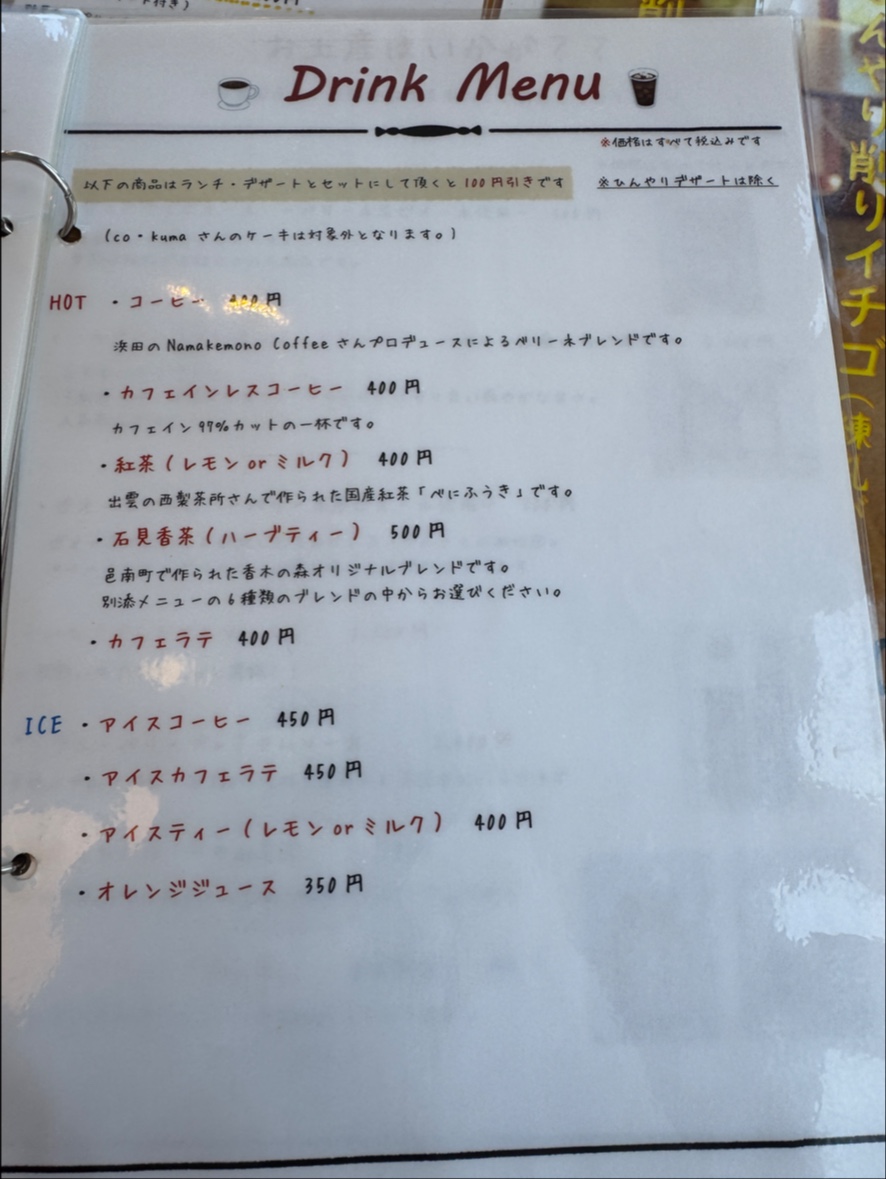 Drink Menu
※価格はすべて税込みです
以下の商品はランチ・デザートとセットにして頂くと100円引きです
※ひんやりデザートは除く
(co・kuma さんのケーキは対象外となります。)
HOT ・コーヒー 400円
浜田の Namakemono Coffee さんプロデュースによるベリーネブレンドです。
・カフェインレスコーヒー 400円
カフェイン97%カットの一杯です。
・紅茶(レモン or ミルク) 400円
出雲の西製茶所さんで作られた国産紅茶「べにふうき」です。
・石見香茶(ハーブティー) 500円
邑南町で作られた香木の森オリジナルブレンドです。
別添メニューの6種類のブレンドの中からお選びください。
・カフェラテ 400円
ICE ・アイスコーヒー 450円
・アイスカフェラテ 450円
・アイスティー(レモン or ミルク) 400円
・オレンジジュース 350円
んやり削りイチゴ